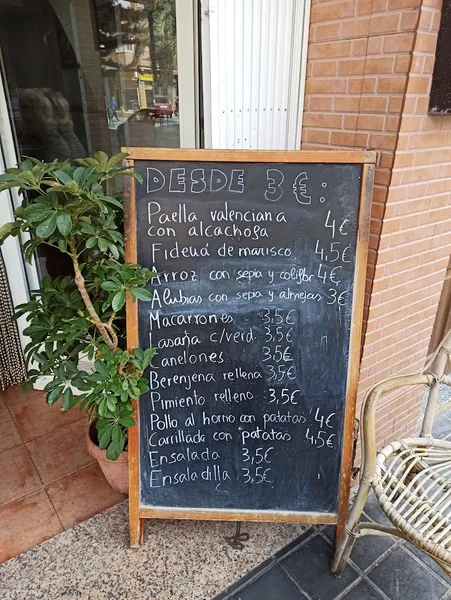 DESDE 3€:
Paella valenciana
con alcachofa 4€
Fideuá de marisco 4,5€
Arroz con sepia y coliflor 4€
Alubias con sepia y almejas 3€
Macarrones 3,5€
Lasaña c/verd. 3,5€
Canelones 3,5€
Berenjena rellena 3,5€
Pimiento relleno 3,5€
Pollo al horno con patatas 4€
Carrillada con patatas 4,5€
Ensalada 3,5€
Ensaladilla 3,5€